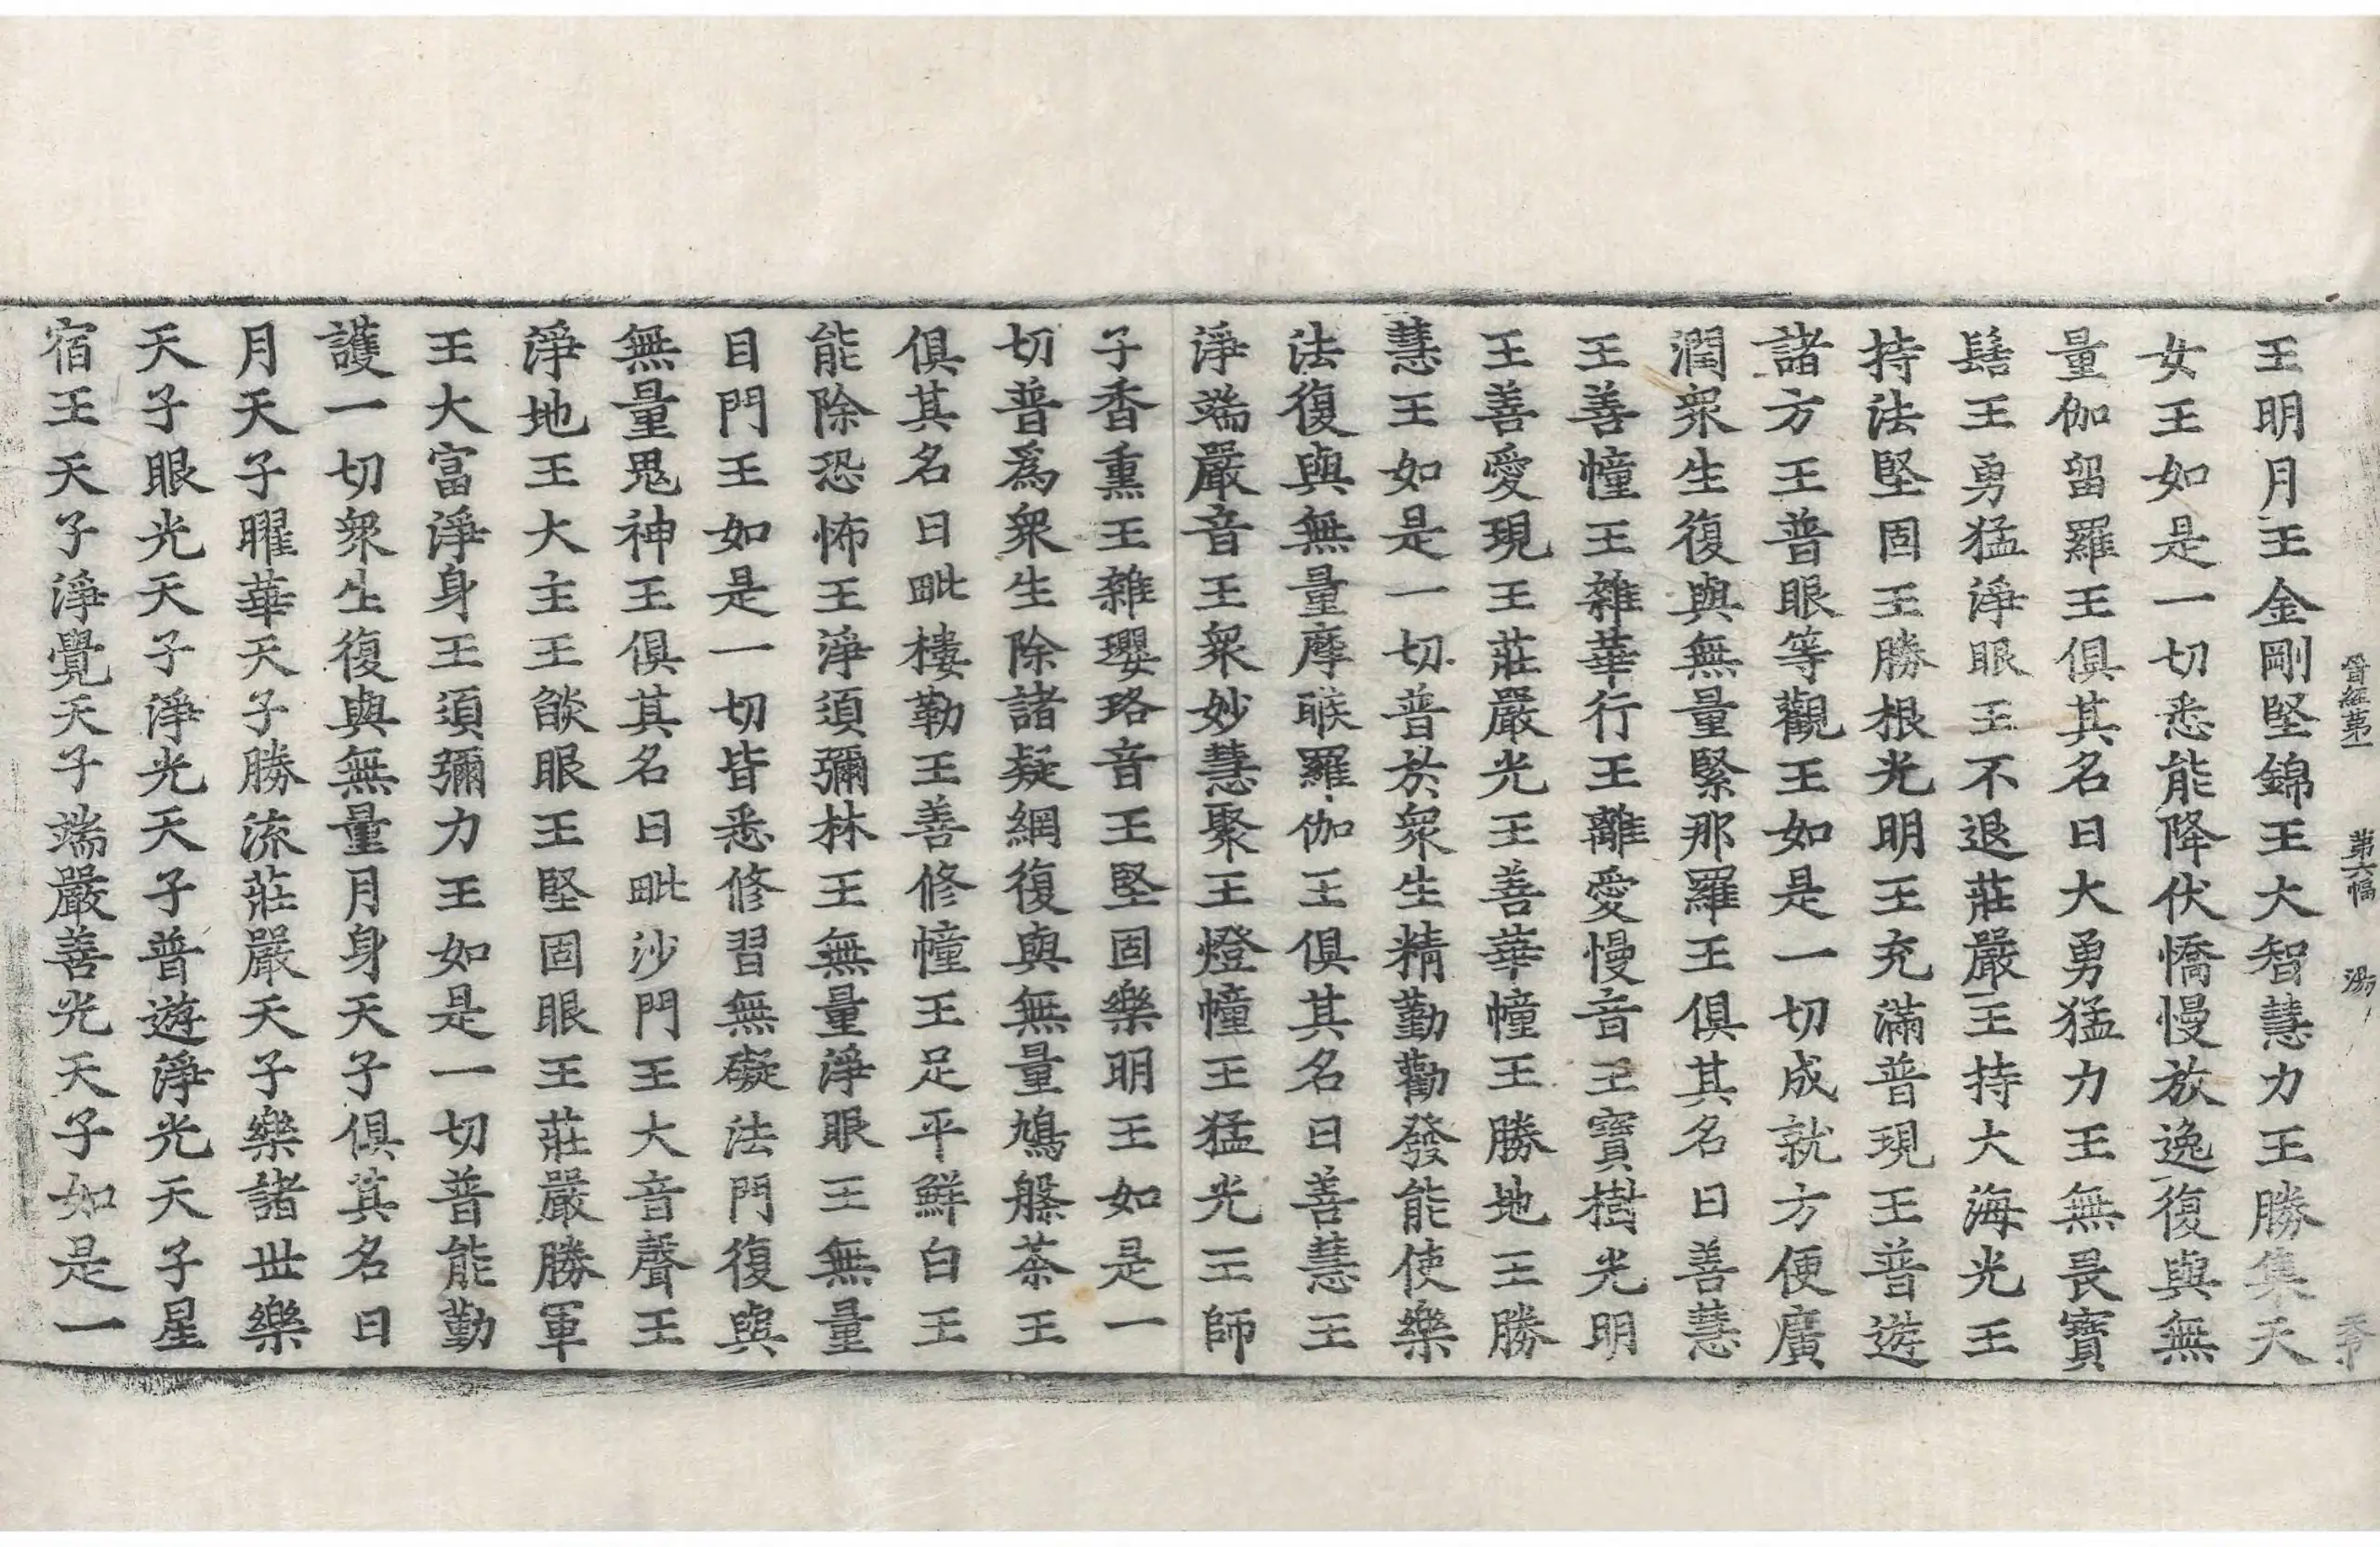 晉經第一 第六幅 湯 黍
王明月王金剛堅錦王大智慧力王勝集天
女王如是一切悉能降伏憍慢放逸復與無
量伽留羅王俱其名曰大勇猛力王無畏寶
髻王勇猛淨眼王不退莊嚴王持大海光王
持法堅固王勝根光明王充滿普現王普遊
諸方王普眼等觀王如是一切成就方便廣
潤衆生復與無量緊那羅王俱其名曰善慧
王善幢王雜華行王離愛慢音王寶樹光明
王善愛現王莊嚴光王善華幢王勝地王勝
慧王如是一切普於衆生精勤勸發能使樂
法復與無量摩睺羅伽王俱其名曰善慧王
淨端嚴音王衆妙慧聚王燈幢王猛光王師
子香熏王雜瓔珞音王堅固樂明王如是一
切普爲衆生除諸疑網復與無量鳩槃茶王
俱其名曰毗樓勒王善修幢王足平鮮白王
能除恐怖王淨須彌林王無量淨眼王無量
目門王如是一切皆悉修習無礙法門復與
無量鬼神王俱其名曰毗沙門王大音聲王
淨地王大主王餤眼王堅固眼王莊嚴勝軍
王大富淨身王須彌力王如是一切普能勤
護一切衆生復與無量月身天子俱其名曰
月天子曜華天子勝流莊嚴天子樂諸世樂
天子眼光天子淨光天子普遊淨光天子星
宿王天子淨覺天子端嚴善光天子如是一